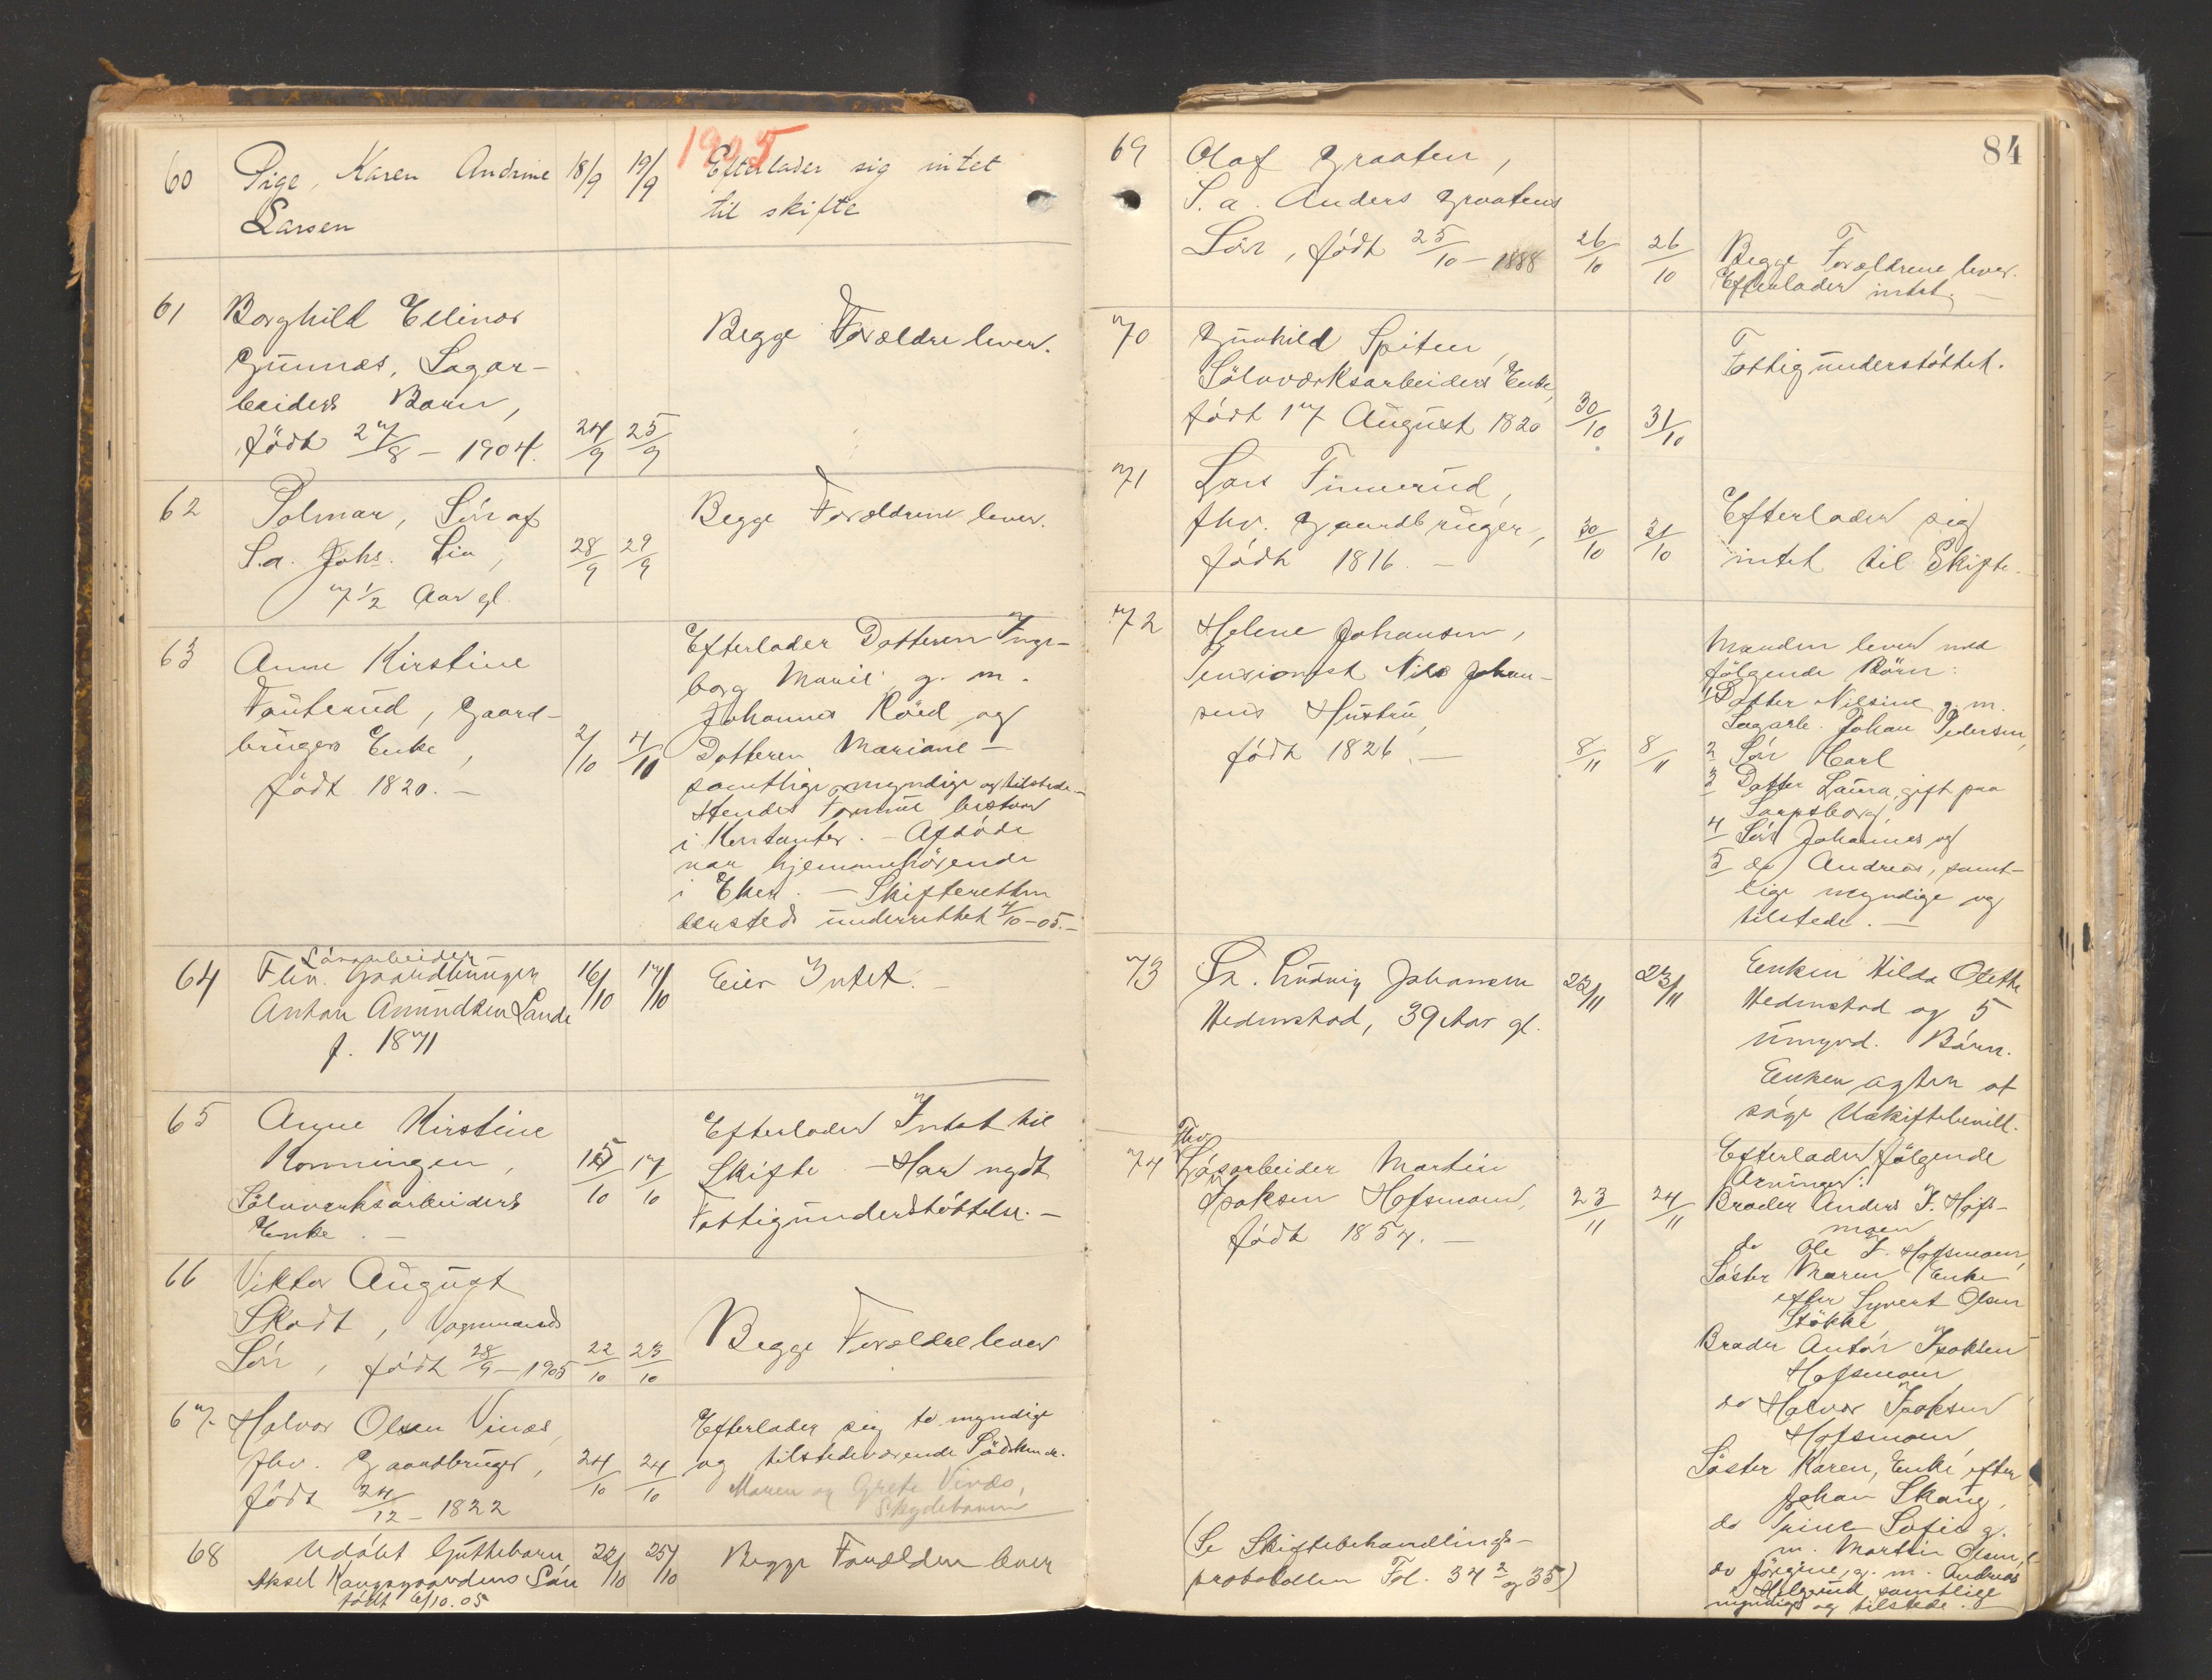 1905
60 Pige, Karen Andrine 18/9 19/9 Efterlader sig intet
Larsen til skifte
61 Borghild Ellinor
Gunnæs, Sagar- Begge Forældre lever.
beiders Barn,
født 27/8 - 1904. 24/9 25/9
62 Polmar, Søn af Begge Forældrene lever.
S.a. Johs. Lia, 28/9 29/9
7 1/2 Aar gl.
63 Anne Kirstine
Fouterud, Gaard-
brugers Enke, 2/10 4/10
født 1820. -
Efterlader Datteren Inge-
borg Marie g. m.
Johannes Røed og
Datteren Mariane -
samtlige myndige og tilstede -
Hendes Formue bestaar
i Kontanter. - Afdøde
var hjemmehørende
i Eker. - Skifteretten
dersteds underrettet 4/10-05. -
64 Sønarbeider
Fhv. Gaardbruger 16/10 17/10 Eier Intet. -
Anton Amundsen Lande
f. 1871
65 Anne Kirstine Efterlader Intet til
Kornningen, 15/10 17/10 Skifte - Har nydt
Sølvværksarbeiders Fattigunderstøttelse. -
Enke. -
66 Viktor August
Skodt, Vognmands
Søn, født 28/9 - 1905 22/10 23/10 Begge Forældre lever
67 Halvor Olsen Vinæs, Efterlader sig to myndige
fhv. Gaardbruger, 24/10 24/10 og tilstedeværende Sødskende.
født 24/12 - 1822 Maren og Grete Vinæs,
Skydebanen
68 Udøbt Guttebarn 22/10 25/10 Begge Forældre lever
Aksel Kongsgaardens Søn
født 6/10.05
84
69 Olaf Graaten,
S.a. Anders Graatens
Søn, født 25/10 - 1888 26/10 26/10 Begge Forældrene lever.
Efterlader intet. -
70 Gunhild Spiten, Fattigunderstøttet.
Sølvværksarbeiders Enke,
født 17 August 1820 30/10 31/10
71 Lars Finnerud, Efterlader sig
fhv. Gaardbruger, 30/10 31/10 intet til Skifte.
født 1816. -
72 Helene Johansen,
Pensionist Nils Johan-
sens Hustru,
født 1826. - 8/11 8/11
Manden lever med
følgende Børn:
1 Datter Nilsine g. m.
Sagarb. Johan Pedersen,
2 Søn Carl
3 Datter Laura, gift paa
Sarpsborg,
4 Søn Johannes og
5 do Andreas, samt-
lige myndige og
tilstede. -
73 Sa. Ludvig Johansen 22/11 23/11 Enken Hilda Olette
Hedenstad, 39 Aar gl. Hedenstad og 5
umynd. Børn.
Enken agter at
søge Uskiftebevill.
74 Fhv.
Løsarbeider Martin
Isaksen Hofsmoen, 23/11 24/11
født 1857. -
(Se Skiftebehandlings-
protokollen Fol. 34 2 og 35)
Efterlader følgende
Arvinger:
Broder Anders I. Hofs-
moen
do Ole I. Hofsmoen,
Søster Maren, Enke
efter Syvert Olsen
Støkke
Broder Anton Isaksen
Hofsmoen
do Halvor Isaksen
Hofsmoen
Søster Karen, Enke efter
Johan Skaug,
do Trine Sofie g.
m. Martin Olsen,
do Jørgine, g. m. Andreas
Helgerud, samtlige
myndige og tilstede. -